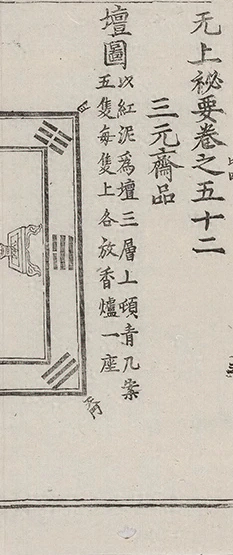 无上祕要卷之五十二
三元齋品
壇圖
以紅泥為壇三層上頓青几案
五隻每隻上各放香爐一座